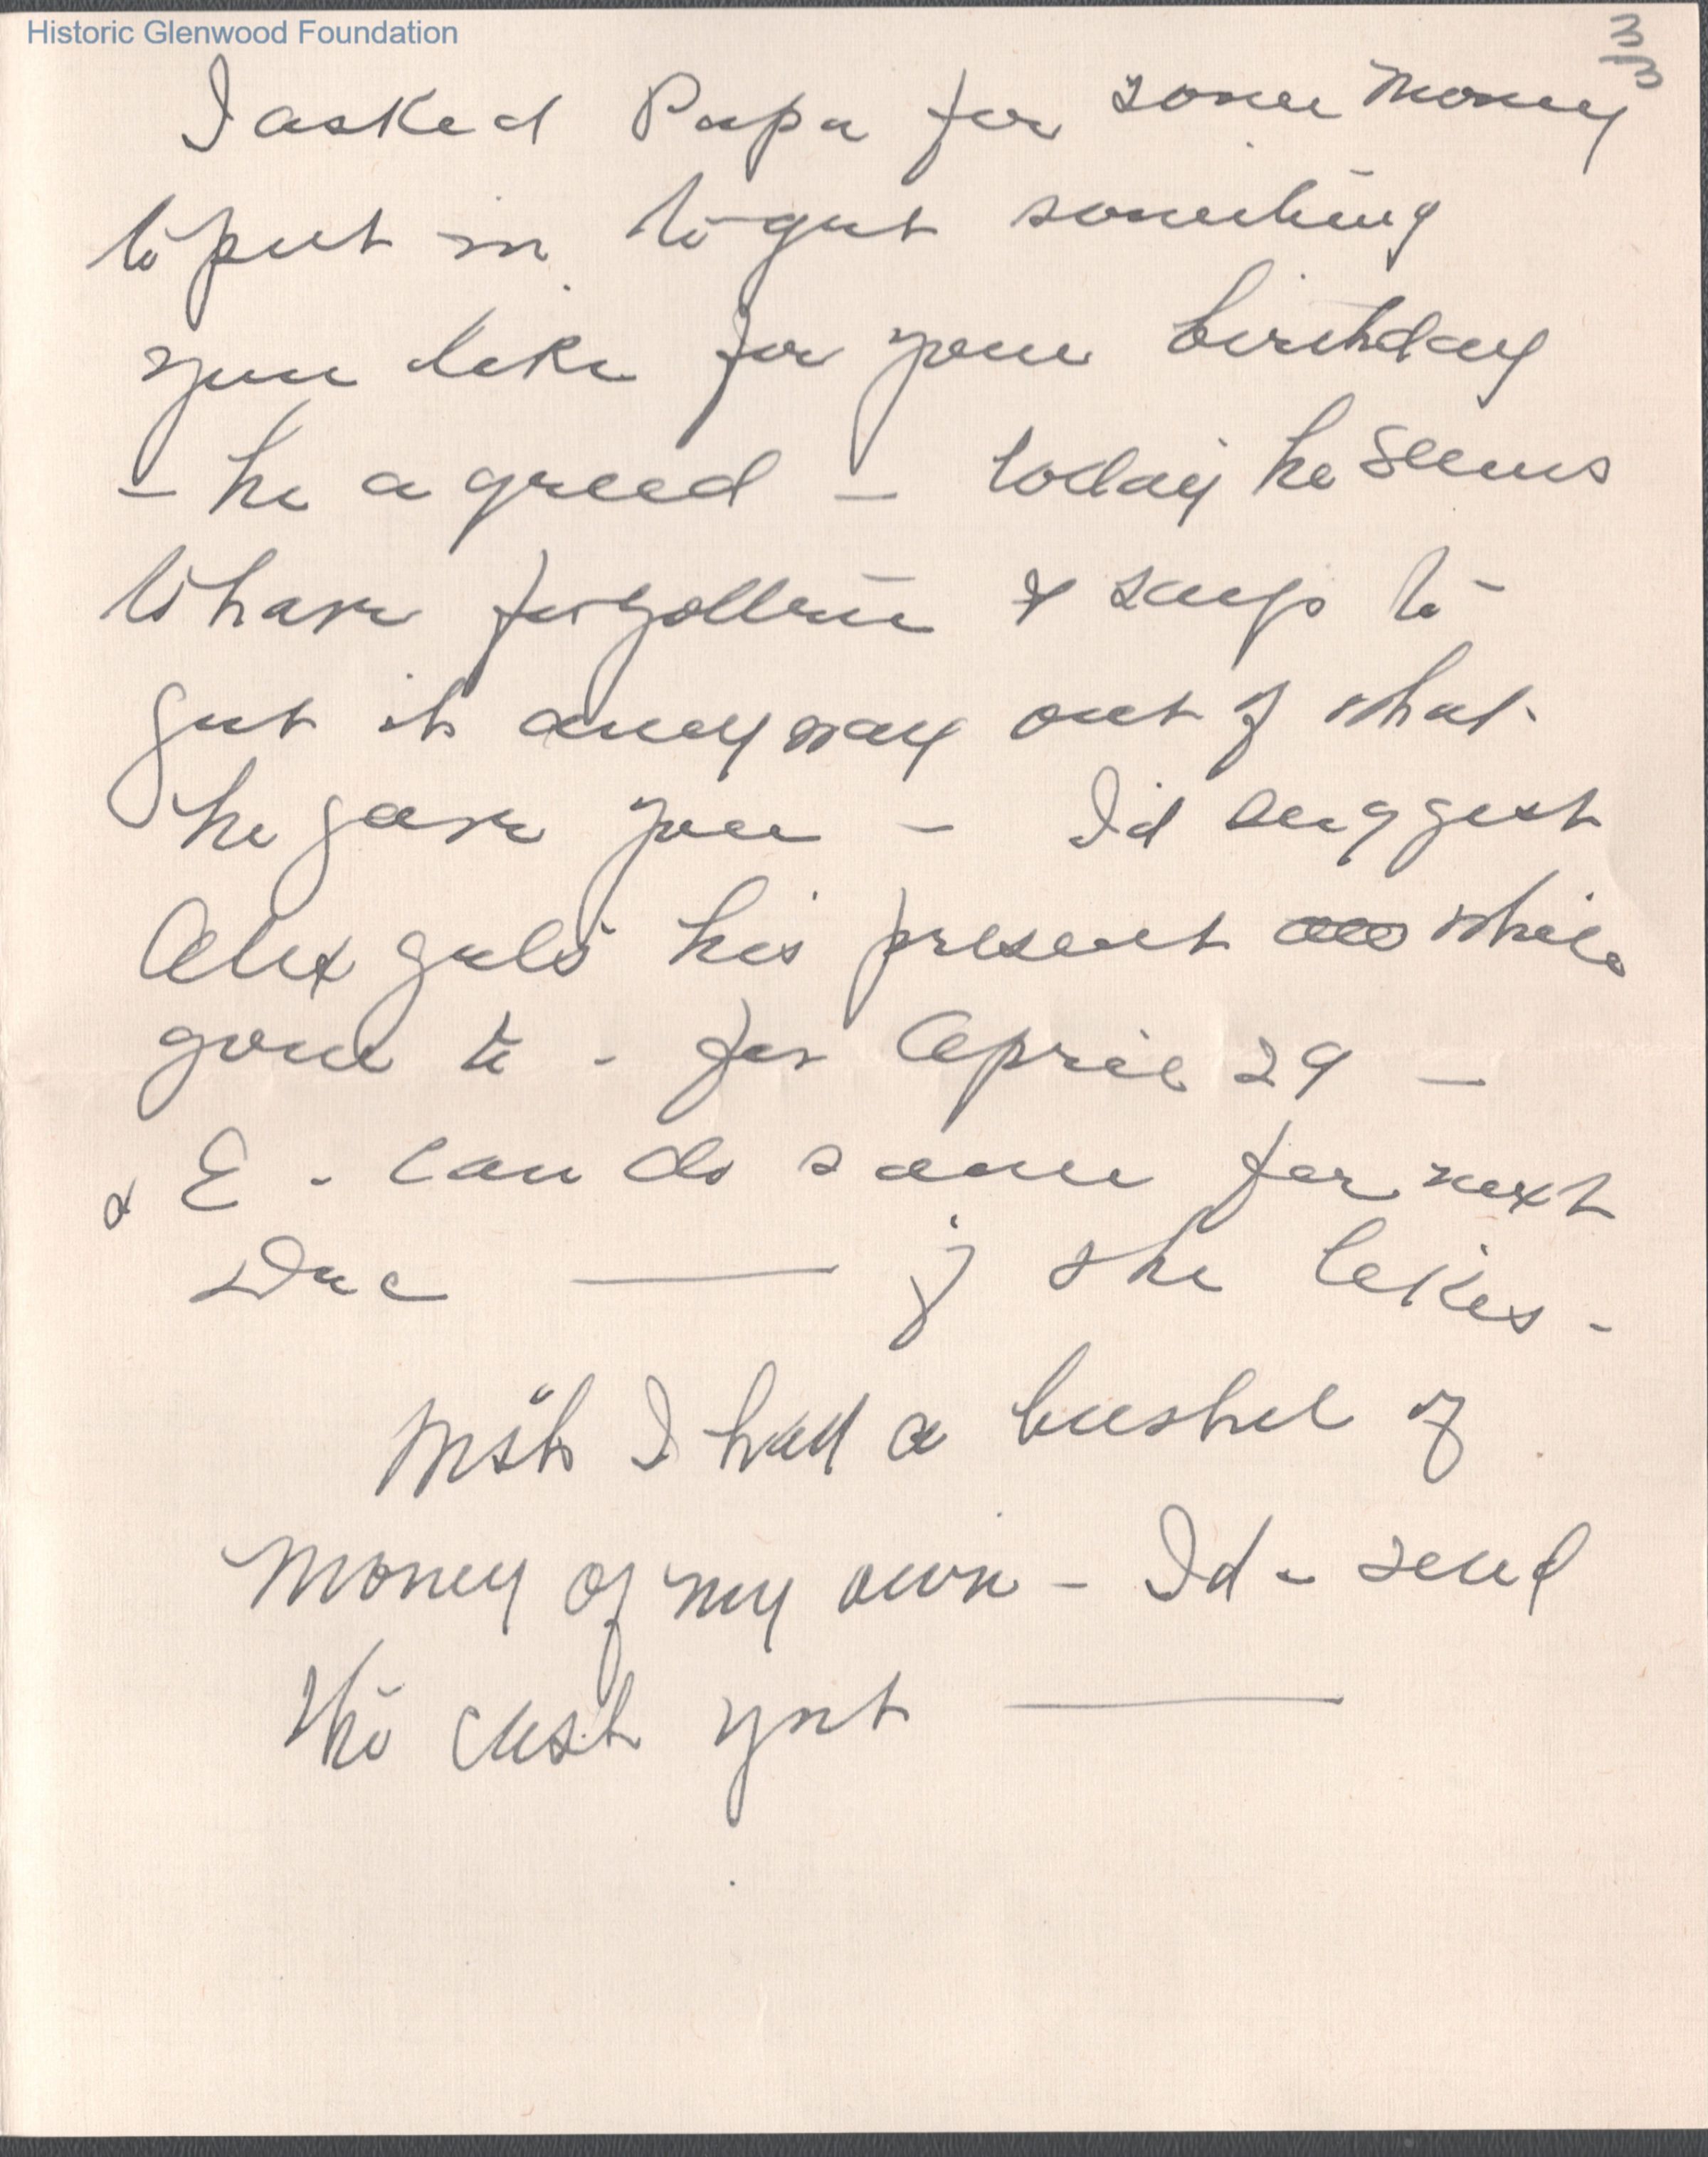 Historic Glenwood Foundation
3/3
I asked Papa for some money
to put in to get something
you like for your birthday
- he agreed - today he seems
to have forgotten & says to
get it anyway out of what
he gave you - I'd suggest
Alex gets his present while
gone to - for April 29 -
& E. can do same for next
Dec — if she likes -
Wish I had a bushel of
money of my own - I'd - send
the cash yet —